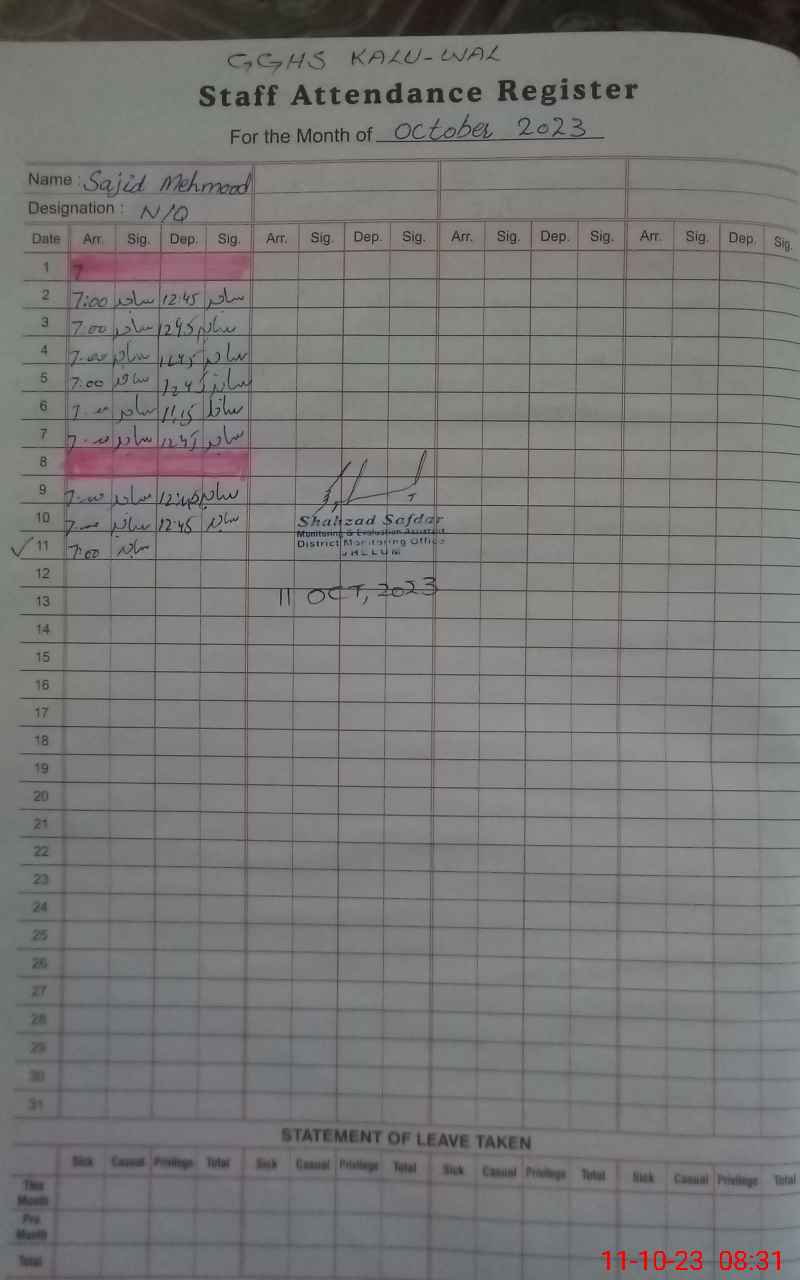 GGHS KALU-WAL
Staff Attendance Register
For the Month of October 2023
Name : Sajid Mehmood
Designation : N/Q
Date Arr. Sig. Dep. Sig. Arr. Sig. Dep. Sig. Arr. Sig. Dep. Sig. Arr. Sig. Dep. Sig.
1 7
2 7:00 ساجد 12:45 ساجد
3 7.00 ساجد 1245 ساجد
4 7.00 ساجد ساجد
5 7:00 ساجد 1245 ساجد
6 7.00 ساجد 11:15
7 7.00 ساجد 1245 ساجد
8
9 7.00 ساجد 12:45 ساجد
10 7.00 ساجد 12:45 ساجد
11 7:00 ساجد
Shahzad Safdar
Monitoring & Evaluation Assistant
District Monitoring Office
JHELUM
12
13
11 OCT, 2023
14
15
16
17
18
19
20
21
22
23
24
25
26
27
28
29
30
31
STATEMENT OF LEAVE TAKEN
Sick Casual Privilege Total Sick Casual Privilege Total Sick Casual Privilege Total Sick Casual Privilege Total
This Month
Pre. Month
Total
11-10-23 08:31